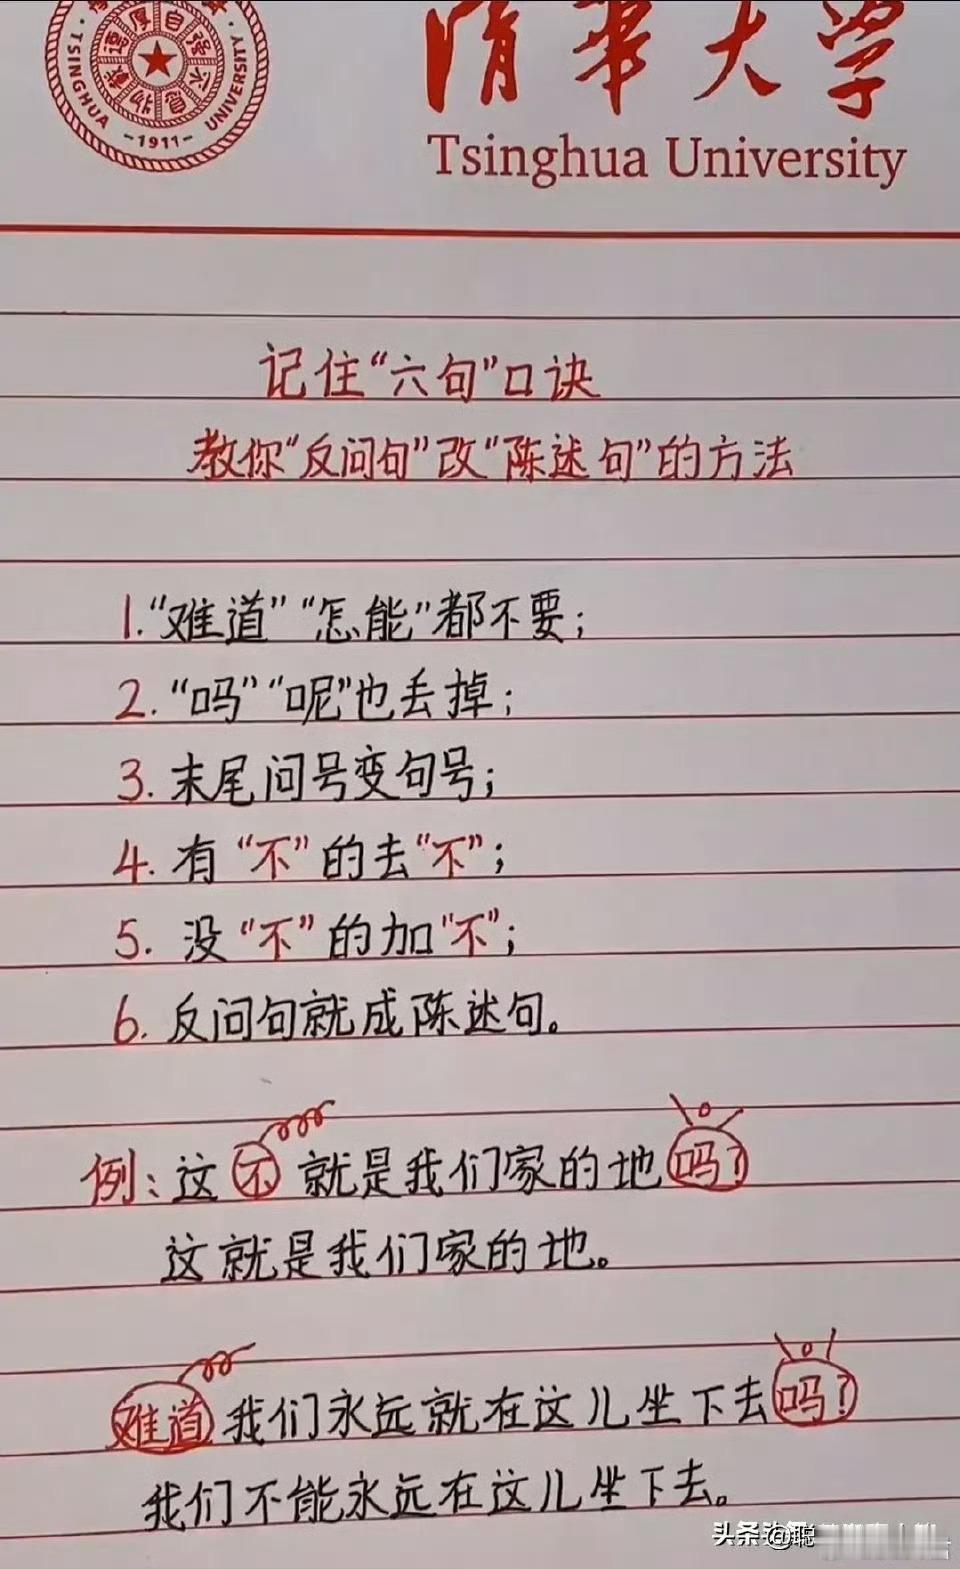 自强不息厚德载物
TSINGHUA UNIVERSITY
-1911-
清華大学
Tsinghua University
记住“六句”口诀
教你“反问句”改“陈述句”的方法
1.“难道”“怎能”都不要；
2.“吗”“呢”也丢掉；
3.末尾问号变句号；
4.有“不”的去“不”；
5.没“不”的加“不”；
6.反问句就成陈述句。
例：这不就是我们家的地吗？
这就是我们家的地。
难道我们永远就在这儿坐下去吗？
我们不能永远在这儿坐下去。
头条
@聪